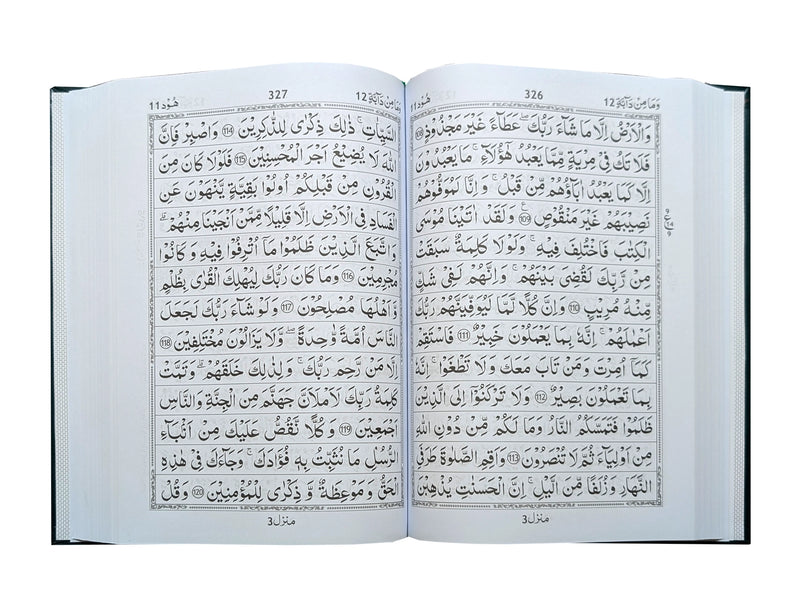 وَمَا مِنْ دَآبَّةٍ 12
326
هُوْد 11
وَالْاَرْضُ اِلَّا مَا شَآءَ رَبُّكَ ؕ عَطَآءً غَيْرَ مَجْذُوْذٍ ﴿108﴾
فَلَا تَكُ فِىْ مِرْيَةٍ مِّمَّا يَعْبُدُ هٰٓؤُلَآءِ ؕ مَا يَعْبُدُوْنَ
اِلَّا كَمَا يَعْبُدُ اٰبَآؤُهُمْ مِّنْ قَبْلُ ؕ وَاِنَّا لَمُوَفُّوْهُمْ
نَصِيْبَهُمْ غَيْرَ مَنْقُوْصٍ ﴿109﴾ ع وَلَقَدْ اٰتَيْنَا مُوْسَى
الْكِتٰبَ فَاخْتُلِفَ فِيْهِ ؕ وَلَوْلَا كَلِمَةٌ سَبَقَتْ
مِنْ رَّبِّكَ لَقُضِىَ بَيْنَهُمْ ؕ وَاِنَّهُمْ لَفِىْ شَكٍّ
مِّنْهُ مُرِيْبٍ ﴿110﴾ وَاِنَّ كُلًّا لَّمَّا لَيُوَفِّيَنَّهُمْ رَبُّكَ
اَعْمَالَهُمْ ؕ اِنَّهٗ بِمَا يَعْمَلُوْنَ خَبِيْرٌ ﴿111﴾ فَاسْتَقِمْ
كَمَآ اُمِرْتَ وَمَنْ تَابَ مَعَكَ وَلَا تَطْغَوْا ؕ اِنَّهٗ
بِمَا تَعْمَلُوْنَ بَصِيْرٌ ﴿112﴾ وَلَا تَرْكَنُوْٓا اِلَى الَّذِيْنَ
ظَلَمُوْا فَتَمَسَّكُمُ النَّارُ ۙ وَمَا لَكُمْ مِّنْ دُوْنِ اللّٰهِ
مِنْ اَوْلِيَآءَ ثُمَّ لَا تُنْصَرُوْنَ ﴿113﴾ وَاَقِمِ الصَّلٰوةَ طَرَفَىِ
النَّهَارِ وَزُلَفًا مِّنَ الَّيْلِ ؕ اِنَّ الْحَسَنٰتِ يُذْهِبْنَ
منزل 3
وَمَا مِنْ دَآبَّةٍ 12
327
هُوْد 11
السَّيِّاٰتِ ؕ ذٰلِكَ ذِكْرٰى لِلذّٰكِرِيْنَ ﴿114﴾ وَاصْبِرْ فَاِنَّ
اللّٰهَ لَا يُضِيْعُ اَجْرَ الْمُحْسِنِيْنَ ﴿115﴾ فَلَوْلَا كَانَ مِنَ
الْقُرُوْنِ مِنْ قَبْلِكُمْ اُولُوْا بَقِيَّةٍ يَّنْهَوْنَ عَنِ
الْفَسَادِ فِى الْاَرْضِ اِلَّا قَلِيْلًا مِّمَّنْ اَنْجَيْنَا مِنْهُمْ ۚ
وَاتَّبَعَ الَّذِيْنَ ظَلَمُوْا مَآ اُتْرِفُوْا فِيْهِ وَكَانُوْا
مُجْرِمِيْنَ ﴿116﴾ وَمَا كَانَ رَبُّكَ لِيُهْلِكَ الْقُرٰى بِظُلْمٍ
وَّاَهْلُهَا مُصْلِحُوْنَ ﴿117﴾ وَلَوْ شَآءَ رَبُّكَ لَجَعَلَ
النَّاسَ اُمَّةً وَّاحِدَةً وَّلَا يَزَالُوْنَ مُخْتَلِفِيْنَ ﴿118﴾
اِلَّا مَنْ رَّحِمَ رَبُّكَ ؕ وَلِذٰلِكَ خَلَقَهُمْ ؕ وَتَمَّتْ
كَلِمَةُ رَبِّكَ لَاَمْلَئَنَّ جَهَنَّمَ مِنَ الْجِنَّةِ وَالنَّاسِ
اَجْمَعِيْنَ ﴿119﴾ وَكُلًّا نَّقُصُّ عَلَيْكَ مِنْ اَنْۢبَآءِ
الرُّسُلِ مَا نُثَبِّتُ بِهٖ فُؤَادَكَ ؕ وَجَآءَكَ فِىْ هٰذِهِ
الْحَقُّ وَمَوْعِظَةٌ وَّذِكْرٰى لِلْمُؤْمِنِيْنَ ﴿120﴾ وَقُلْ
منزل 3